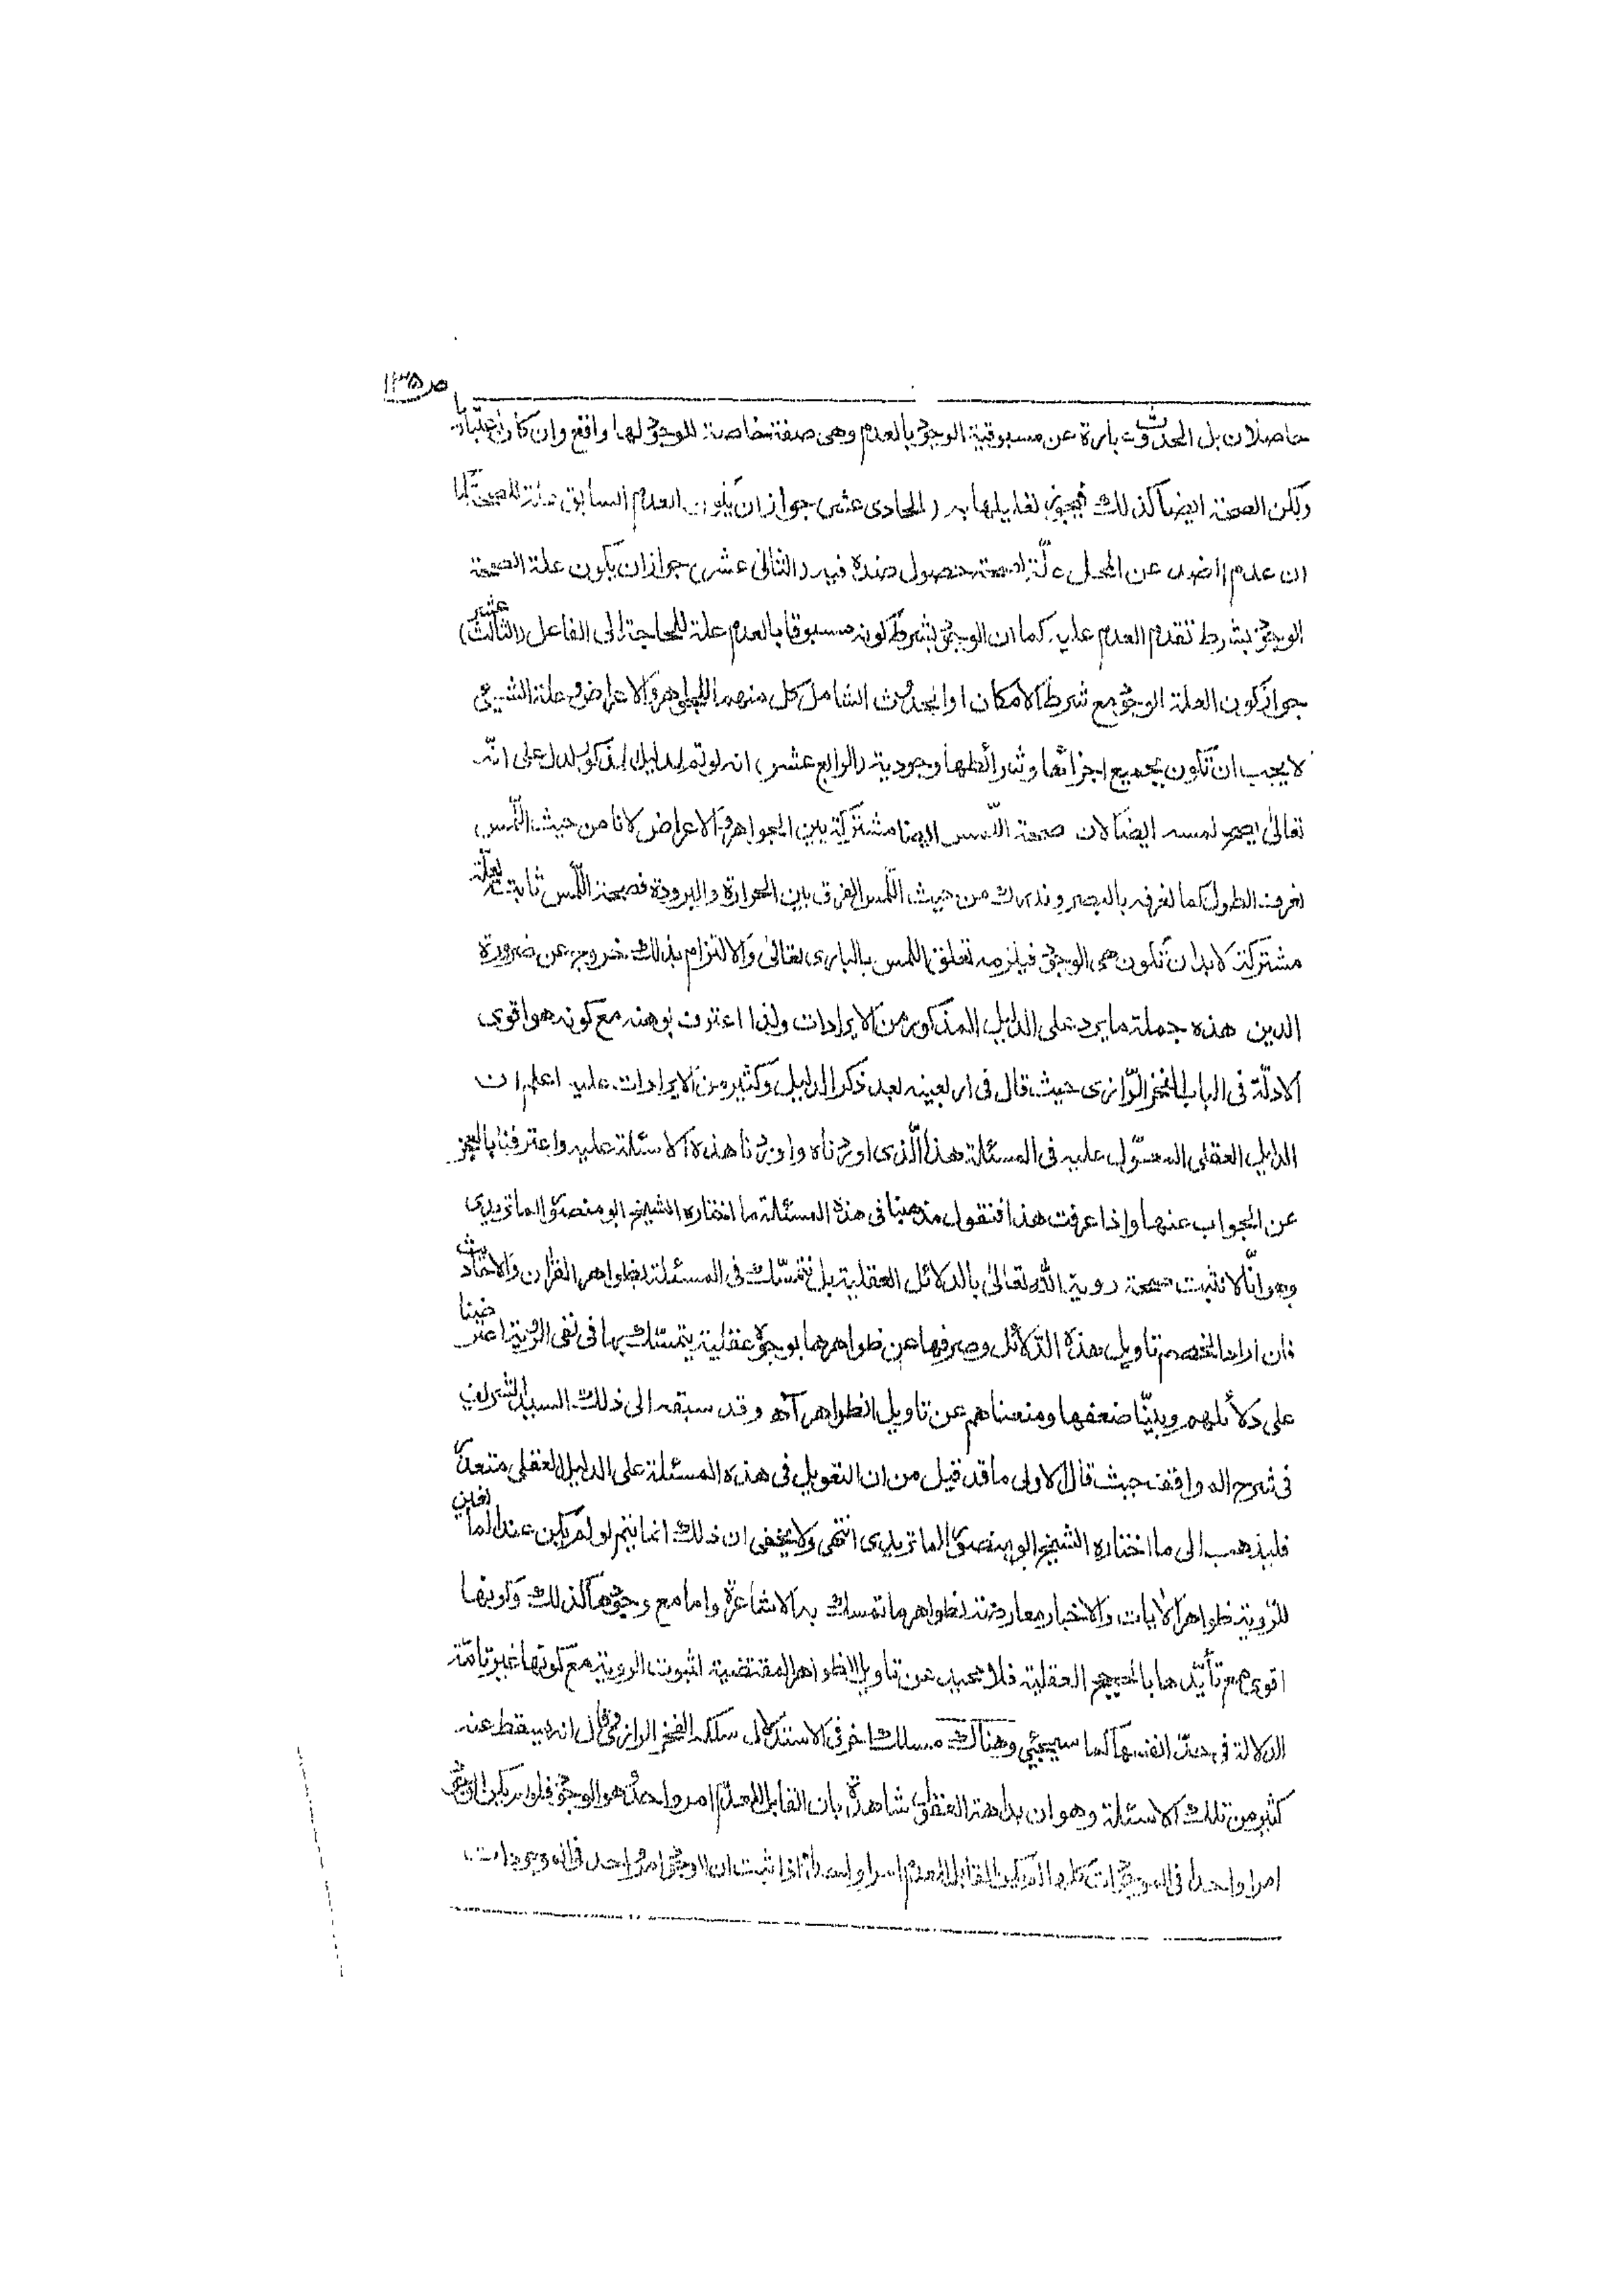 ص ١٣٥
حاصلان بل الحدوث عبارة عن مسبوقية الوجود بالعدم وهى صفة خاصة للوجود لها واقع وان كان اعتباريا
ولكن الصحة ايضا كذلك فيجوز تعليلها به (الحادى عشر) جواز ان يكون العدم السابق علة للصحة كما
ان عدم الضد عن المحل علة لصحة حصول ضده فيه (الثانى عشر) جواز ان يكون علة الصحة
الوجود بشرط تقدم العدم عليه كما ان الوجود بشرط كونه مسبوقا بالعدم علة للحاجة الى الفاعل (الثالث عشر)
جواز كون العلة الوجود مع شرط الامكان او الحدوث الشامل كل منهما للجواهر والاعراض وعلة الشيئ
لا يجب ان تكون بجميع اجزائها وشرائطها وجودية (الرابع عشر) انه لو تم الدليل المذكور لدل على انّه
تعالىٰ يصح لمسه ايضا لان صحة اللّمس ايضا مشتركة بين الجواهر والاعراض لانا من حيث اللّمس
نعرف الطول كما نعرفه بالبصر وندرك من حيث اللّمس الفرق بين الحرارة والبرودة فصحة اللّمس ثابتة لعلّة
مشتركة لابد ان تكون هى الوجود فيلزمه تعلق اللمس بالبارى تعالىٰ والالتزام بذلك خروج عن ضرورة
الدين هذه جملة ما يرد على الدليل المذكور من الايرادات ولذا اعترف بوهنه مع كونه هو اقوى
الادلّة فى الباب الفخر الرّازى حيث قال فى اربعينه بعد ذكر الدليل وكثير من الايرادات عليه اعلم ان
الدليل العقلى المعوّل عليه فى المسئلة هذا الّذى اوردناه واوردنا هذه الاسئلة عليه واعترفنا بالعجز
عن الجواب عنها واذا عرفت هذا فنقول مذهبنا فى هذه المسئلة ما اختاره الشيخ ابو منصور الماتريدى
وهو انّا لا نثبت صحة روية اللّه تعالىٰ بالدلائل العقلية بل نتمسّك فى المسئلة بظواهر القرآن والاحاديث
فان اراد الخصم تاويل هذه الدّلائل وصرفها عن ظواهرها بوجوه عقلية يتمسك بها فى نفى الرؤية اعترضنا
على دلائلهم وبيّنا ضعفها ومنعناهم عن تاويل الظواهر آه وقد سبقه الى ذلك السيد الشريف
فى شرح المواقف حيث قال الاولى ما قد قيل من ان التعويل فى هذه المسئلة على الدليل العقلى متعذر
فليذهب الى ما اختاره الشيخ ابو منصور الماتريدى انتهى ولا يخفى ان ذلك انما يتم لو لم يكن عند المانعين
للرّوية ظواهر الايات والاخبار معارضة لظواهر ما تمسك به الاشاعرة واما مع وجودها كذلك وكونها
اقوى مع تأيّدها بالحجج العقلية فلا محيد عن تاويل الظواهر المقتضية لثبوت الروية مع كونها غير تامّة
الدلالة فى حدّ انفسها كما سيجئي وهناك مسلك اخر فى الاستدلال سلكه الفخر الرازى وقال انه يسقط عنه
كثير من تلك الاسئلة وهو ان بداهة العقل شاهدة بان المقابل للعدم امر واحد هو الوجود فلو لم يكن الوجود
امرا واحدا فى الموجودات كلها لم يكن المقابل للعدم امرا واحدا اذا ثبت ان الوجود امر واحد فى الموجودات